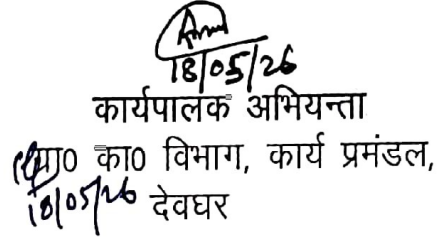 18/05/26
कार्यपालक अभियन्ता
ग्रा0 का0 विभाग, कार्य प्रमंडल,
18/05/26 देवघर